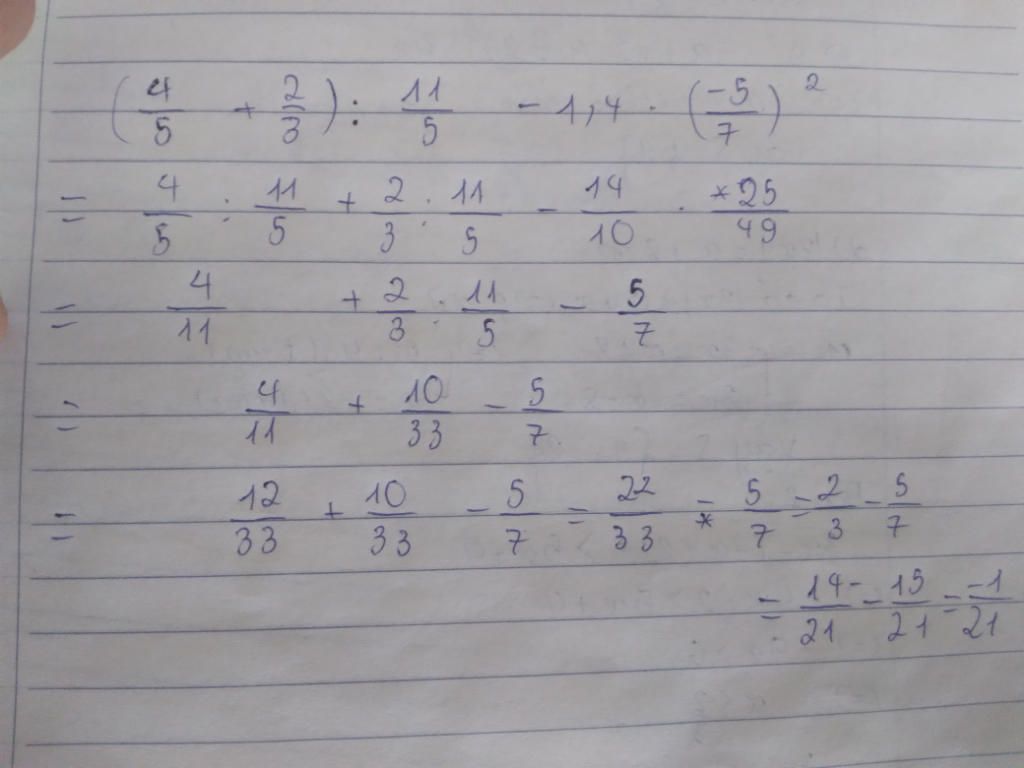 (4/5 + 2/3) : 11/5 - 1,4 · (-5/7)²
= 4/5 : 11/5 + 2/3 : 11/5 - 14/10 · *25/49
= 4/11 + 2/3 : 11/5 - 5/7
= 4/11 + 10/33 - 5/7
= 12/33 + 10/33 - 5/7 = 22/33 - * 5/7 = 2/3 - 5/7
= 14/21 - 15/21 = -1/21